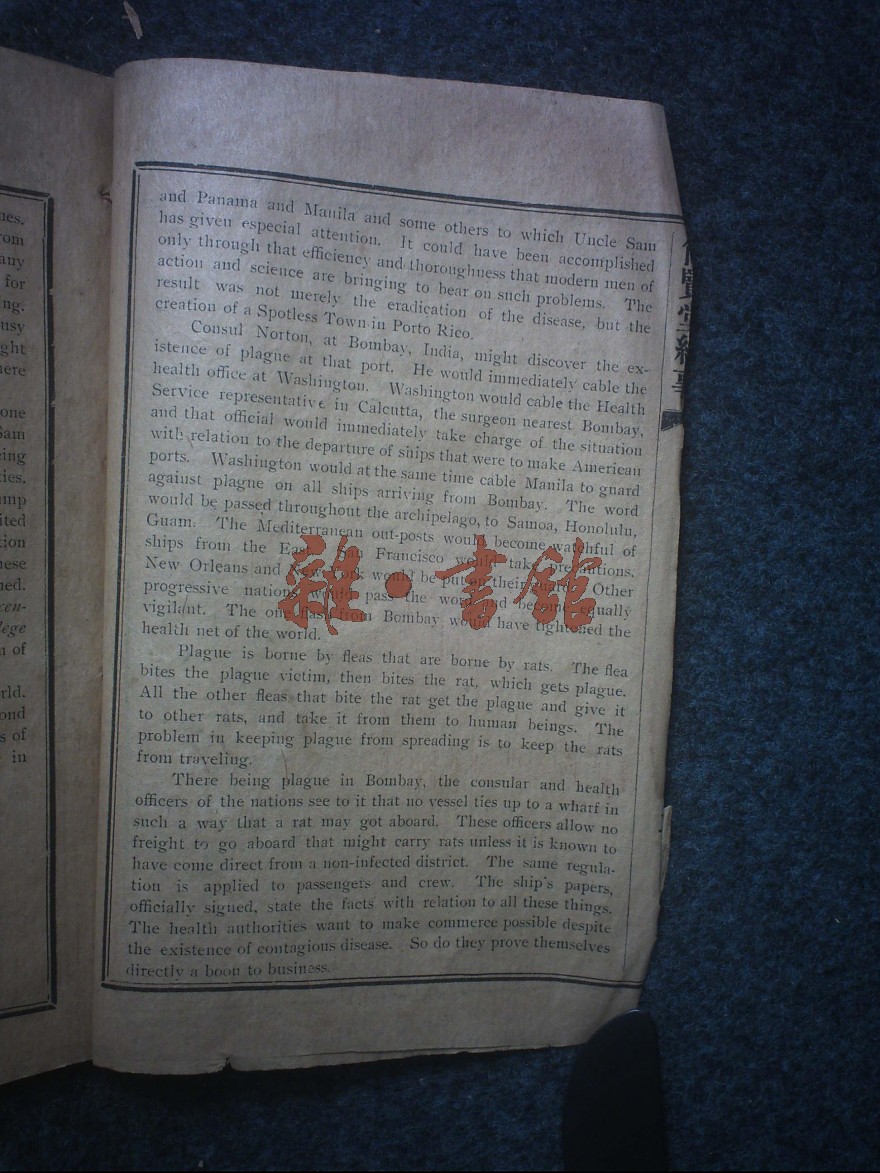 and Panama and Manila and some others to which Uncle Sam
has given especial attention. It could have been accomplished
only through that efficiency and thoroughness that modern men of
action and science are bringing to bear on such problems. The
result was not merely the eradication of the disease, but the
creation of a Spotless Town in Porto Rico.
Consul Norton, at Bombay, India, might discover the ex-
istence of plague at that port. He would immediately cable the
health office at Washington. Washington would cable the Health
Service representative in Calcutta, the surgeon nearest Bombay,
and that official would immediately take charge of the situation
with relation to the departure of ships that were to make American
ports. Washington would at the same time cable Manila to guard
against plague on all ships arriving from Bombay. The word
would be passed throughout the archipelago, to Samoa, Honolulu,
Guam. The Mediterranean out-posts would become watchful of
ships from the East. San Francisco would take precautions.
New Orleans and New York would be put on their guard. Other
progressive nations would pass the word and become equally
vigilant. The one flash from Bombay would have tightened the
health net of the world.
Plague is borne by fleas that are borne by rats. The flea
bites the plague victim, then bites the rat, which gets plague.
All the other fleas that bite the rat get the plague and give it
to other rats, and take it from them to human beings. The
problem in keeping plague from spreading is to keep the rats
from traveling.
There being plague in Bombay, the consular and health
officers of the nations see to it that no vessel ties up to a wharf in
such a way that a rat may got aboard. These officers allow no
freight to go aboard that might carry rats unless it is known to
have come direct from a non-infected district. The same regula-
tion is applied to passengers and crew. The ship's papers,
officially signed, state the facts with relation to all these things.
The health authorities want to make commerce possible despite
the existence of contagious disease. So do they prove themselves
directly a boon to business.
雜·書館
ues.
rom
any
for
ing.
usy
ght
here
one
Sam
eing
ties.
ump
ited
tion
hese
ned.
cen-
lege
n of
rld.
ond
s of
in